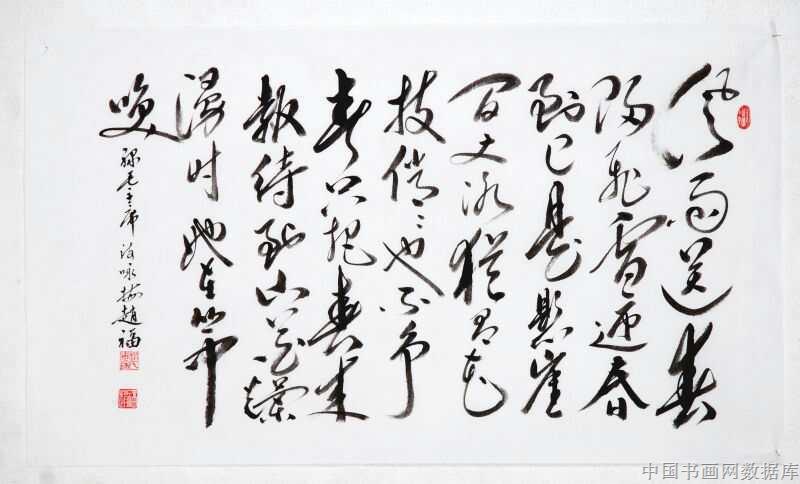 风雨送春
归飞雪迎春
到已是悬崖
百丈冰犹有花
枝俏〻也不争
春只把春来
報待到山花爛
漫时她在丛中
咲
录毛主席词咏梅趙福
中国书画网数据库